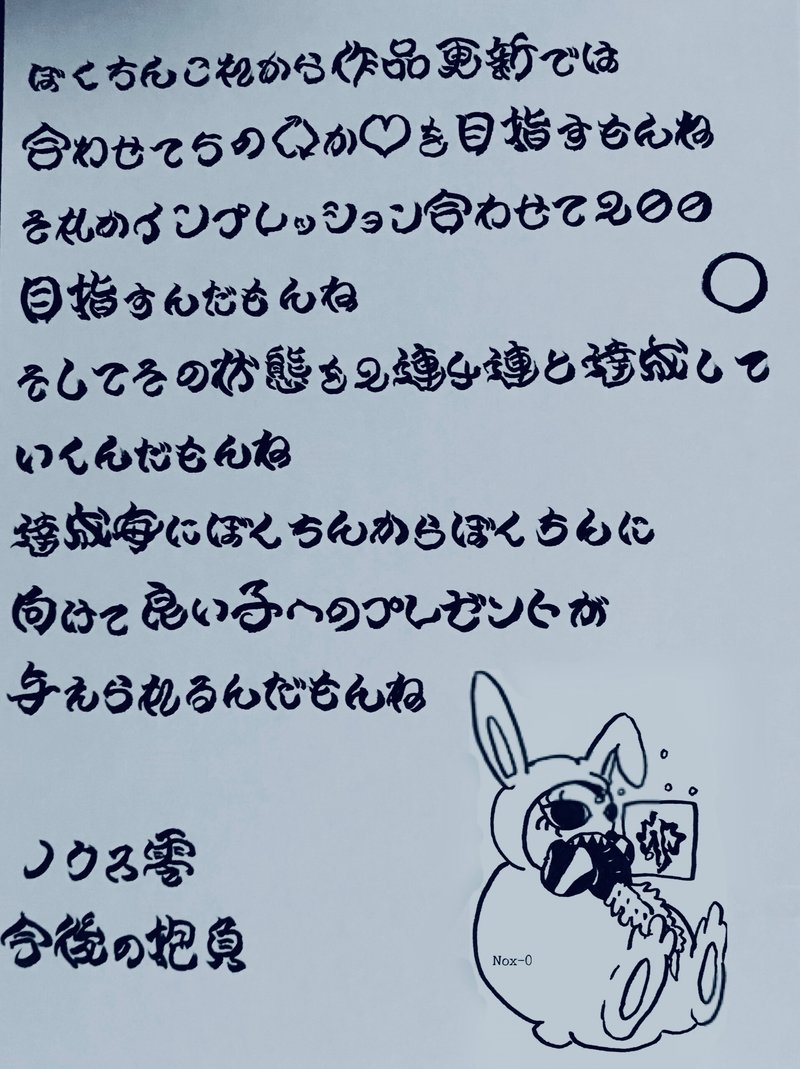 ぼくちんこれから作品更新では
合わせて5の🔃か♡を目指すもんね
それかインプレッション合わせて200
目指すんだもんね
そしてその状態を2連4連と達成して
いくんだもんね
達成毎にぼくちんからぼくちんに
向けて良い子へのプレゼントが
与えられるんだもんね
ノクス零
今後の抱負
Nox-0